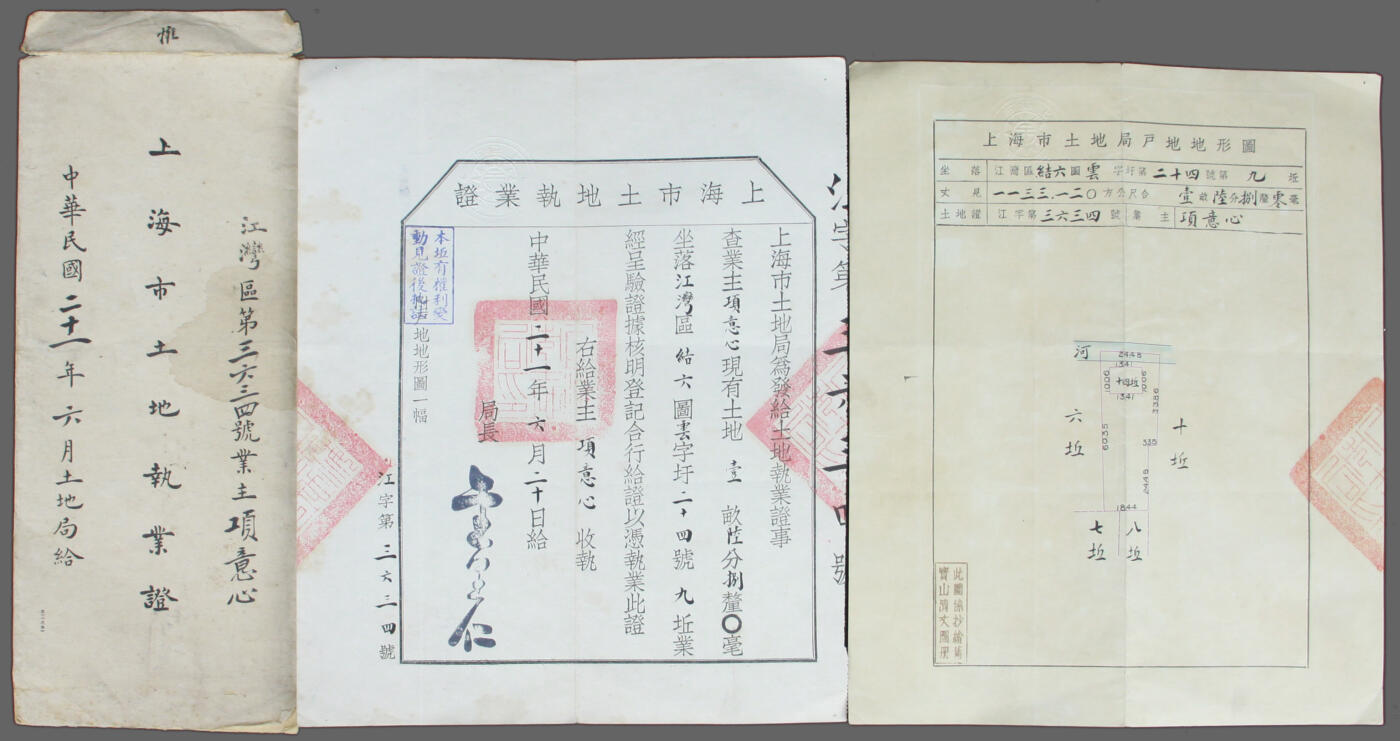 江灣區第三六三四號業主項意心
上海市土地執業證
中華民國二十一年六月土地局給
上海市土地執業證
上海市土地局為發給土地執業證事
查業主項意心現有土地壹畝陸分捌釐〇毫
坐落江灣區結六圖雲字圩二十四號九坵業
經呈驗證據核明登記合行給證以憑執業此證
右給業主項意心收執
中華民國二十一年六月二十日給
局長
本坵有權利變
動見證後批註
地地形圖一幅
江字第三六三四號
上海市土地局戶地地形圖
坐落 江灣區結六圖雲字圩第二十四號第九坵
丈見 一一三三.一二〇方公尺合壹畝陸分捌釐零毫
土地證 江字第三六三四號 業主 項意心
河
2448
1341
906
十四坵
906
1341
3386
六坵
6035
335
十坵
1844
七坵
八坵